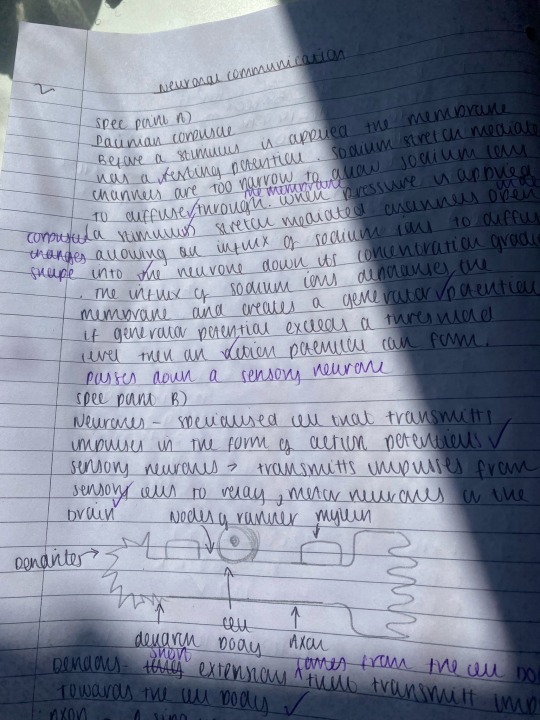 2
Neuronal communication
spec point A)
Pacinian corpuscle
Before a stimulus is applied the membrane
has a resting potential. Sodium stretch mediated
channels are too narrow to allow sodium ions
the membrane
to diffuse through. When pressure is applied
corpuscle a stimulus stretch mediated channels open
changes allowing an influx of sodium ions to diffus
shape into the neurone down its concentration gradi
. The influx of sodium ions depolarises the
membrane and creates a generator potential
if generator potential exceeds a threshold
level then an action potential can form.
passes down a sensory neurone
spec point B)
Neurones - specialised cell that transmitts
impulses in the form of action potentials
sensory neurones > transmitts impulses from
sensory cells to relay, motor neurones or the
brain
Nodes of ranvier myelin
Dendrites
dendron cell body Axon
Dendrons - short extensions comes from the cell bo
that transmitt imp
towards the cell body
axon -